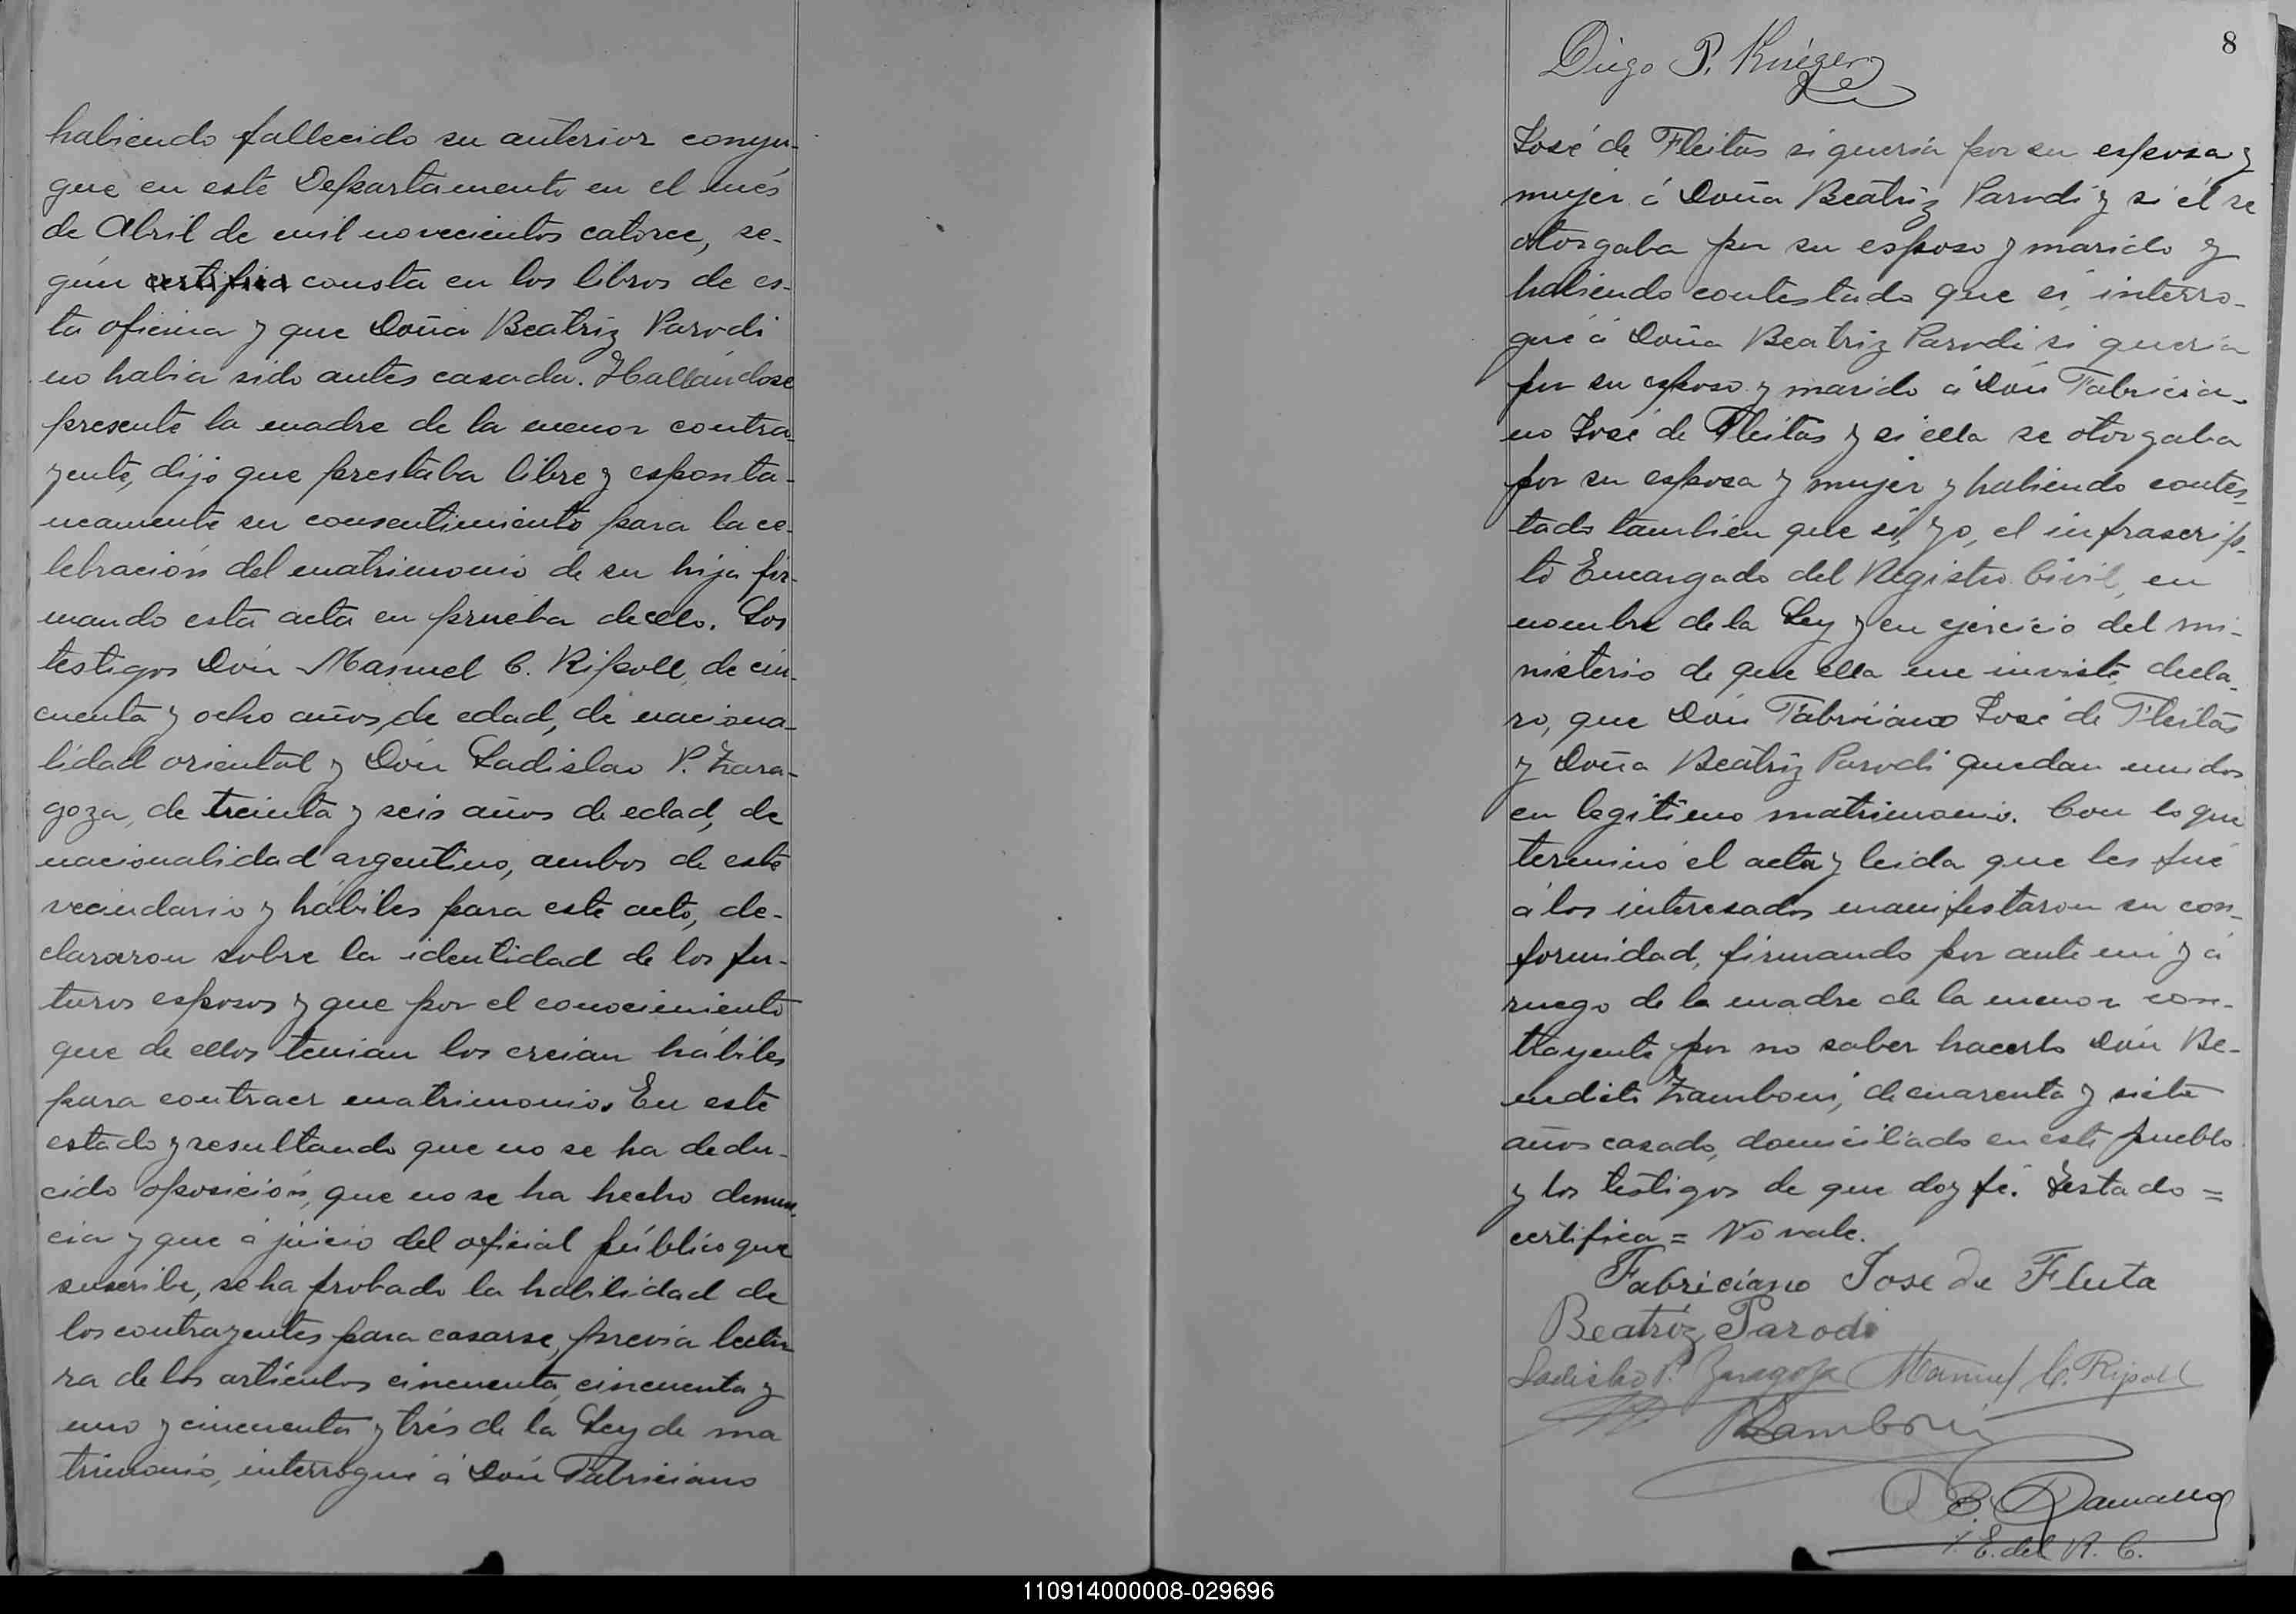 habiendo fallecido su anterior conyu-
gue en este Departamento en el més
de Abril de mil novecientos catorce, se-
gún certifica consta en los libros de es-
ta oficina y que Doña Beatriz Parodi
no habia sido antes casada. Hallándose
presente la madre de la menor contra-
yente, dijo que prestaba libre y esponta-
neamente su consentimiento para la ce-
lebración del matrimonio de su hija fir-
mando esta acta en prueba de ello. Los
testigos Dón Manuel C. Ripoll, de cin-
cuenta y ocho años de edad, de naciona-
lidad oriental y Dón Ladislao P. Zara-
goza, de treinta y seis años de edad, de
nacionalidad argentino, ambos de este
vecindario y hábiles para este acto, de-
clararon sobre la identidad de los fu-
turos esposos y que por el conocimiento
que de ellos tenian los creian hábiles
para contraer matrimonio. En este
estado y resultando que no se ha dedu-
cido oposición, que no se ha hecho denun-
cia y que á juicio del oficial público que
suscribe, se ha probado la habilidad de
los contrayentes para casarse, previa lectu-
ra de los artículos cincuenta, cincuenta y
uno y cincuenta y trés de la Ley de ma
trimonio, interrogué á Dón Fabriciano
8
Diego P. Krieger
José de Fleitas si queria por su esposa y
mujer á Doña Beatriz Parodi y si él se
otorgaba por su esposo y marido y
habiendo contestado que si, interro-
gué á Doña Beatriz Parodi si queria
por su esposo y marido á Dón Fabricia-
no José de Fleitas y si ella se otorgaba
por su esposa y mujer y habiendo contes-
tado también que si, yo, el infrascrip-
to Encargado del Registro Civil, en
nombre de la Ley y en ejercicio del mi-
nisterio de que ella me inviste, decla-
ro, que Dón Fabriciano José de Fleitas
y Doña Beatriz Parodi quedan unidos
en legitimo matrimonio. Con lo que
terminó el acta y leida que les fué
á los interesados manifestaron su con-
formidad, firmando por ante mi y á
ruego de la madre de la menor con-
trayente por no saber hacerlo Dón Be-
nedicto Zamboni, de cuarenta y siete
años casado, domiciliado en este pueblo
y los testigos de que doy fé. Testado =
certifica = No vale.
Fabriciano Jose de Fleita
Beatriz Parodi
Ladislao P. Zaragoza Manuel C. Ripoll
B Zamboni
E. del R. C.
110914000008-029696